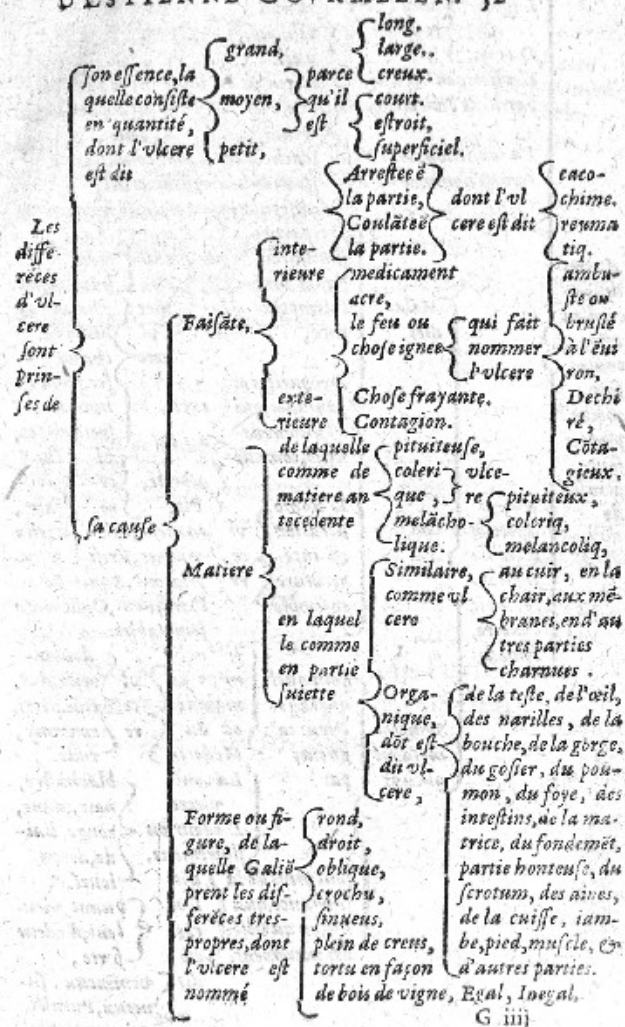 long.
large.
creux.
court.
estroit,
superficiel.
grand,
moyen,
petit,
parce
qu'il
est
son essence, la
quelle consiste
en quantité,
dont l'vlcere
est dit
Les
diffe-
rẽces
d'vl-
cere
sont
prin-
ses de
Faisãte,
inte-
rieure
Arresteeẽ
la partie,
Coulãteẽ
la partie.
dont l'vl
cere est dit
caco-
chime.
reuma
tiq.
exte-
rieure
medicament
acre,
le feu ou
chose ignee
Chose frayante.
Contagion.
qui fait
nommer
l'vlcere
ambu-
ste ou
bruslé
à l'ẽui
ron,
Dechi
ré,
Cõta-
gieux.
sa cause
Matiere
de laquelle
comme de
matiere an
tecedente
pituiteuse,
coleri
que,
melãcho-
lique.
vlce-
re
pituiteux,
colcriq,
melancoliq,
en laquel
le comme
en partie
suiette
Similaire,
comme vl
cere
au cuir, en la
chair, aux mẽ-
branes, en d'au
tres parties
charnues.
Orga-
nique,
dõt est
dit vl-
cere,
de la teste, de l'œil,
des narilles, de la
bouche, de la gorge,
du gosier, du pou-
mon, du foye, des
intestins, de la ma-
trice, du fondemẽt,
partie honteuse, du
scrotum, des aines,
de la cuisse, iam-
be, pied, muscle, &
d'autres parties.
Forme ou fi-
gure, de la-
quelle Galiẽ
prent les dif-
ferẽces tres-
propres, dont
l'vlcere est
nommé
rond,
droit,
oblique,
crochu,
sinueus,
plein de creus,
tortu en façon
de bois de vigne, Egal, Inegal.
G iiij